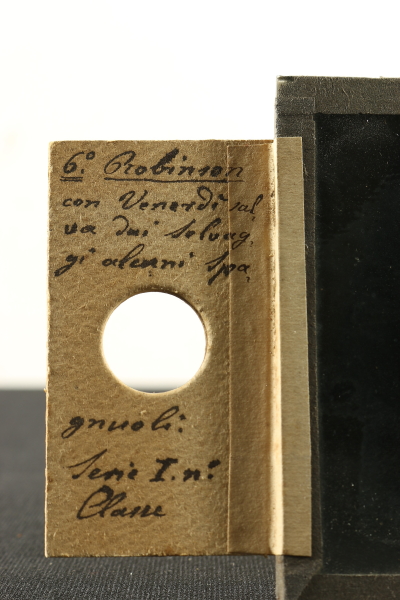 6.º Robinson
con Venerdì sal
va dai selvag,
gi alcuni Spa,
gnuoli:
Serie I. nº
Classe